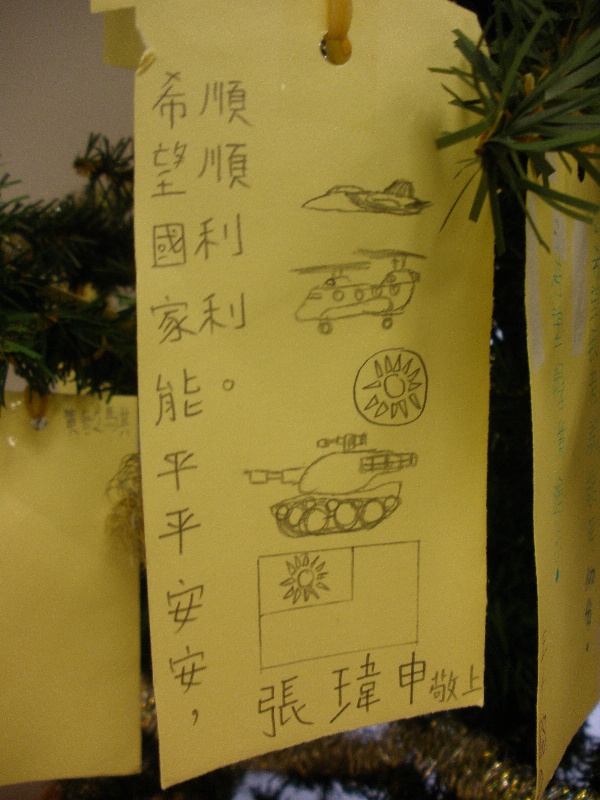 希望國家能平平安安，
順順利利。
張瑋申敬上